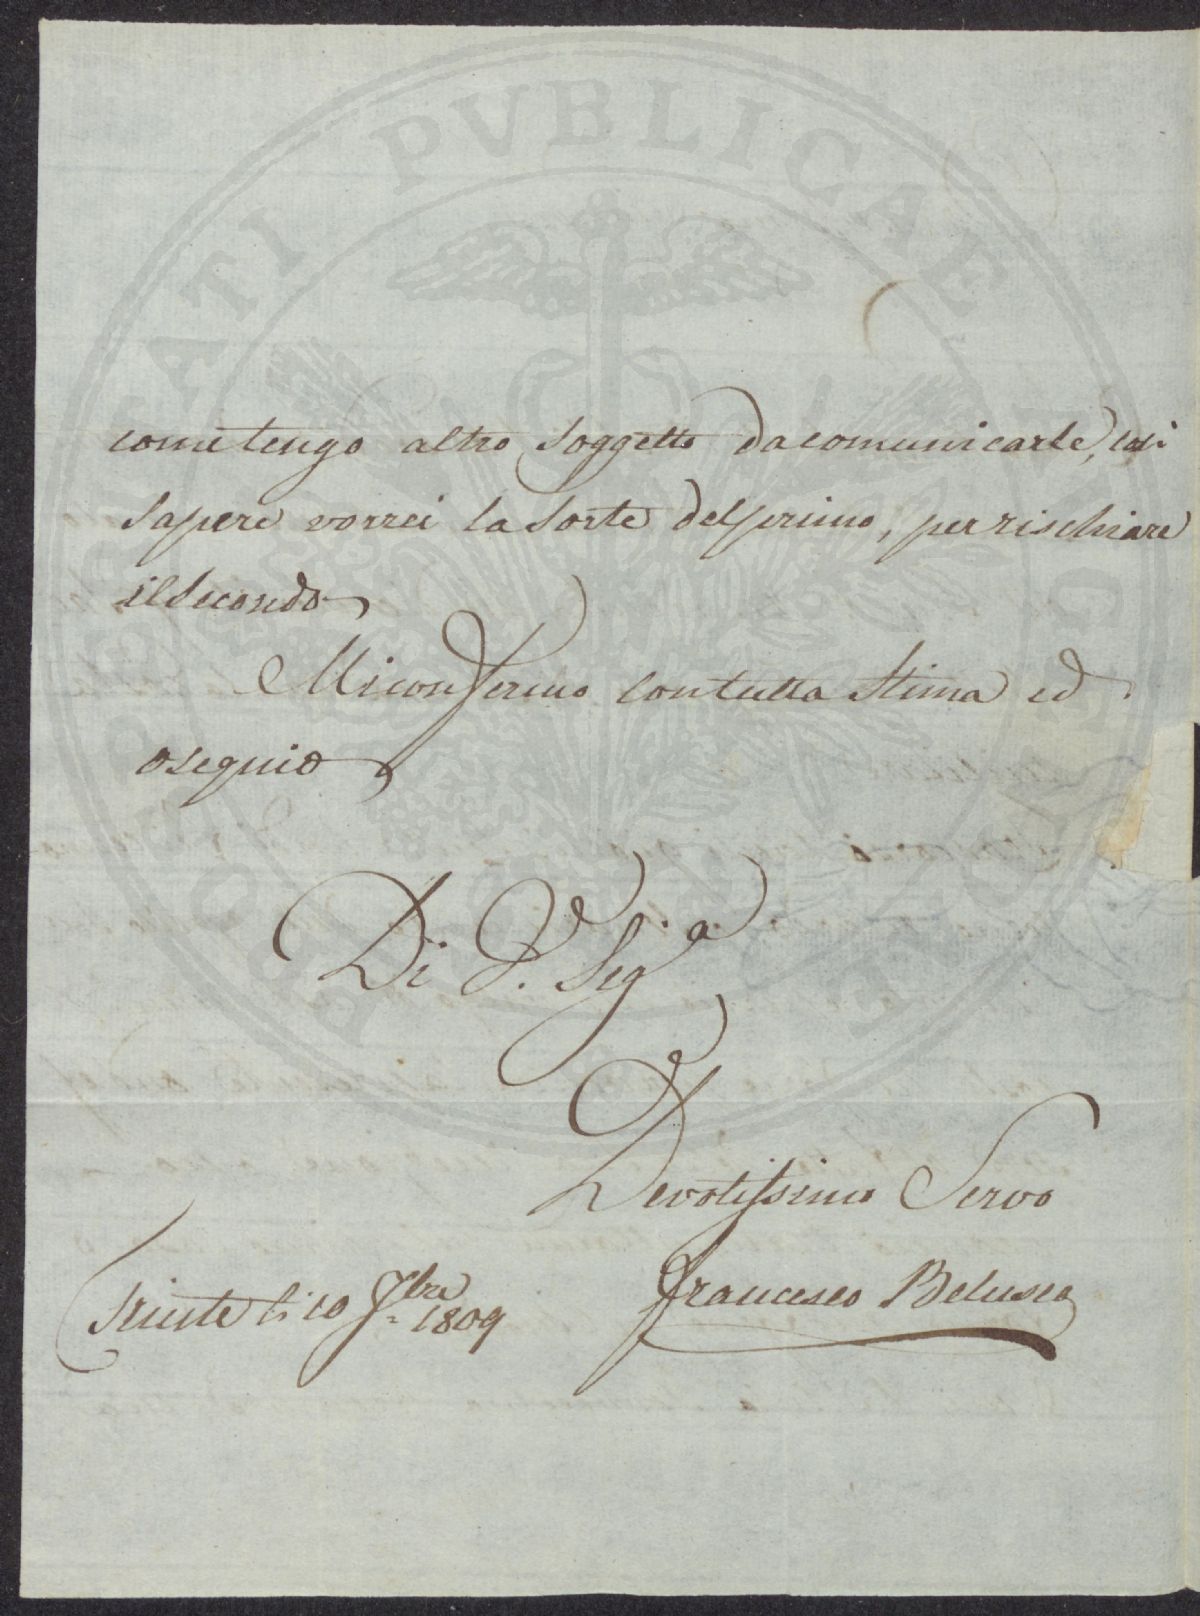 PROSPERITATI PVBLICAE
come tengo altro soggetto da comunicarle, così
sapere vorrei la sorte del primo, per rischiare
il secondo
Mi confermo con tutta stima ed
osequio
Di V. Sig.a
Devotissimo Servo
Francesco Belusco
Trieste li 10 7bre 1809